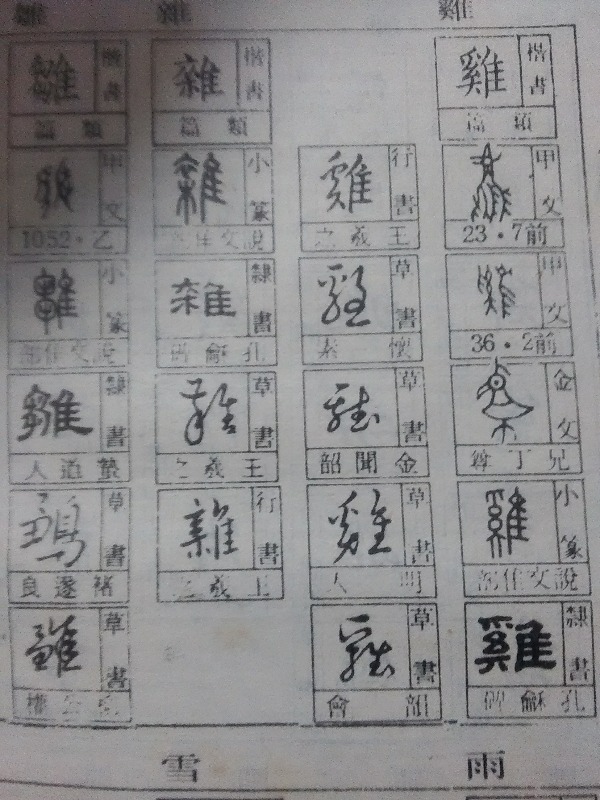 雞
雞 楷書
類篇
甲文
前7・23
甲文
前2・36
金文
兄丁尊
小篆
說文隹部
雞 隸書
孔龢碑
雞 行書
王羲之
雞 草書
懷素
雞 草書
金聞韶
雞 草書
明人
雞 草書
雜
雜 楷書
類篇
雜 小篆
說文隹部
雜 隸書
孔龢碑
雜 草書
王羲之
雜 行書
王羲之
雛
雛 楷書
類篇
甲文
乙・1052
雛 小篆
說文隹部
雛 隸書
蟄道人
草書
褚遂良
雛 草書
雨
雪